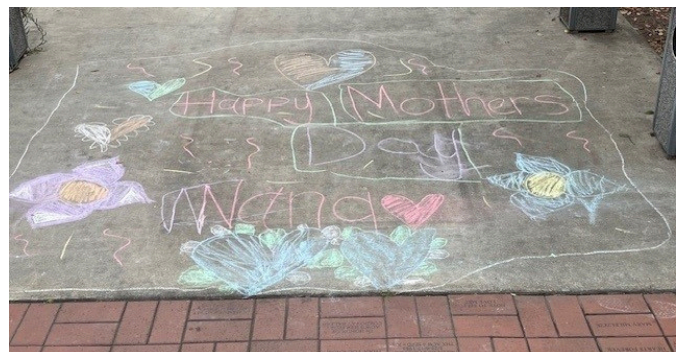 Happy Mothers
Day
Nana